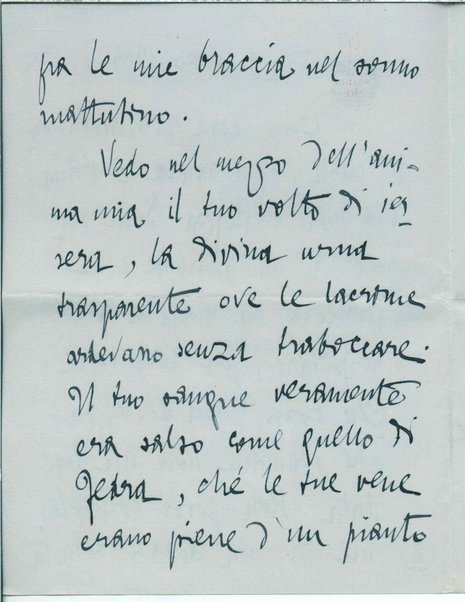 fra le mie braccia nel sonno
mattutino.
Vedo nel mezzo dell'ani-
ma mia il tuo volto di ier
sera, la divina urna
trasparente ove le lacrime
ardevano senza traboccare.
Il tuo sangue veramente
era salso come quello di
Fedra, ché le tue vene
erano piene d'un pianto